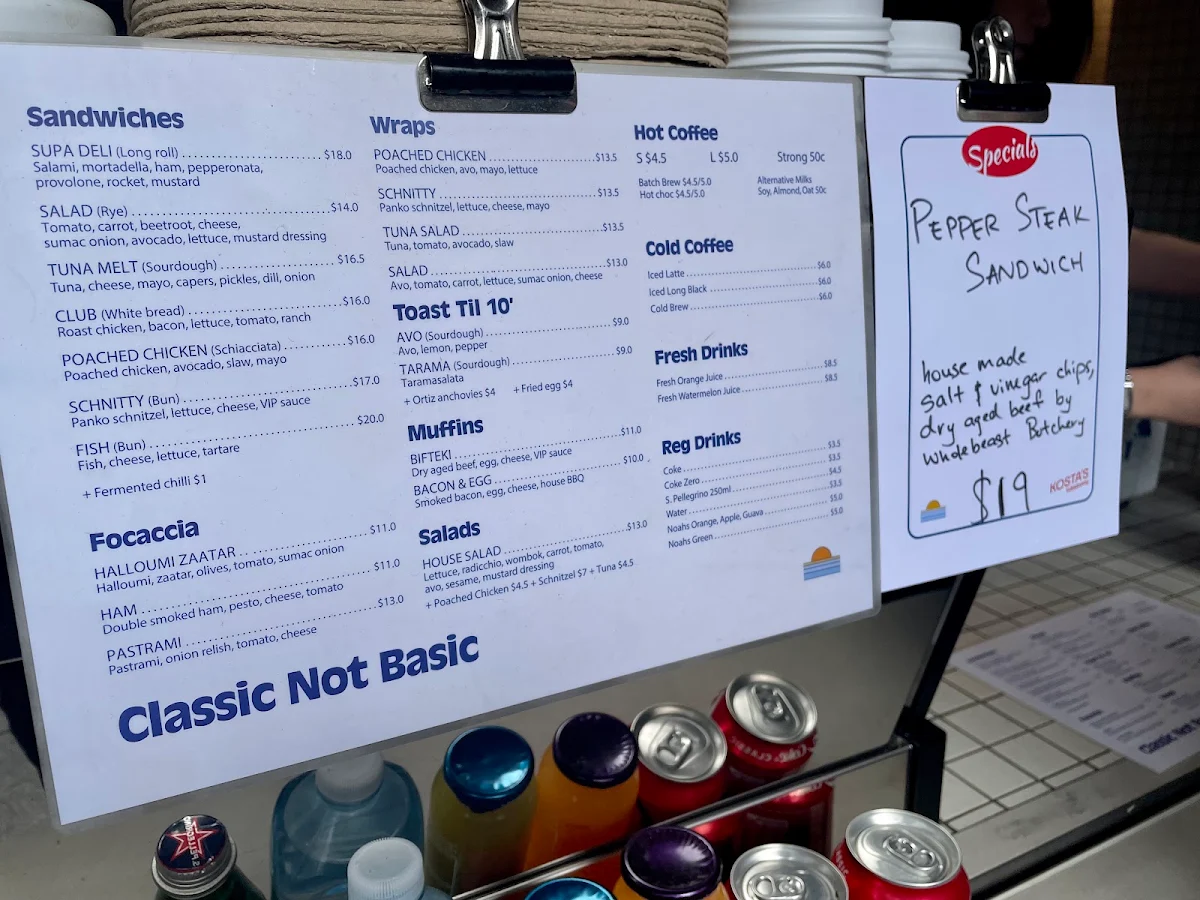 Sandwiches
SUPA DELI (Long roll) ........................ $18.0
Salami, mortadella, ham, pepperonata,
provolone, rocket, mustard
SALAD (Rye) ........................ $14.0
Tomato, carrot, beetroot, cheese,
sumac onion, avocado, lettuce, mustard dressing
TUNA MELT (Sourdough) ........................ $16.5
Tuna, cheese, mayo, capers, pickles, dill, onion
CLUB (White bread) ........................ $16.0
Roast chicken, bacon, lettuce, tomato, ranch
POACHED CHICKEN (Schiacciata) ........................ $16.0
Poached chicken, avocado, slaw, mayo
SCHNITTY (Bun) ........................ $17.0
Panko schnitzel, lettuce, cheese, VIP sauce
FISH (Bun) ........................ $20.0
Fish, cheese, lettuce, tartare
+ Fermented chilli $1
Focaccia
HALLOUMI ZAATAR ........................ $11.0
Halloumi, zaatar, olives, tomato, sumac onion
HAM ........................ $11.0
Double smoked ham, pesto, cheese, tomato
PASTRAMI ........................ $13.0
Pastrami, onion relish, tomato, cheese
Classic Not Basic
Wraps
POACHED CHICKEN ........................ $13.5
Poached chicken, avo, mayo, lettuce
SCHNITTY ........................ $13.5
Panko schnitzel, lettuce, cheese, mayo
TUNA SALAD ........................ $13.5
Tuna, tomato, avocado, slaw
SALAD ........................ $13.0
Avo, tomato, carrot, lettuce, sumac onion, cheese
Toast Til 10'
AVO (Sourdough) ........................ $9.0
Avo, lemon, pepper
TARAMA (Sourdough) ........................ $9.0
Taramasalata
+ Ortiz anchovies $4 + Fried egg $4
Muffins
BIFTEKI ........................ $11.0
Dry aged beef, egg, cheese, VIP sauce
BACON & EGG ........................ $10.0
Smoked bacon, egg, cheese, house BBQ
Salads
HOUSE SALAD ........................ $13.0
Lettuce, radicchio, wombok, carrot, tomato,
avo, sesame, mustard dressing
+ Poached Chicken $4.5 + Schnitzel $7 + Tuna $4.5
Hot Coffee
S $4.5 L $5.0 Strong 50c
Batch Brew $4.5/5.0 Alternative Milks
Hot choc $4.5/5.0 Soy, Almond, Oat 50c
Cold Coffee
Iced Latte ........................ $6.0
Iced Long Black ........................ $6.0
Cold Brew ........................ $6.0
Fresh Drinks
Fresh Orange Juice ........................ $8.5
Fresh Watermelon Juice ........................ $8.5
Reg Drinks
Coke ........................ $3.5
Coke Zero ........................ $3.5
S. Pellegrino 250ml ........................ $4.5
Water ........................ $3.5
Noahs Orange, Apple, Guava ........................ $5.0
Noahs Green ........................ $5.0
Specials
PEPPER STEAK
SANDWICH
house made
salt & vinegar chips,
dry aged beef by
wholebeast Butchery
$19
KOSTA'S
Classic Not